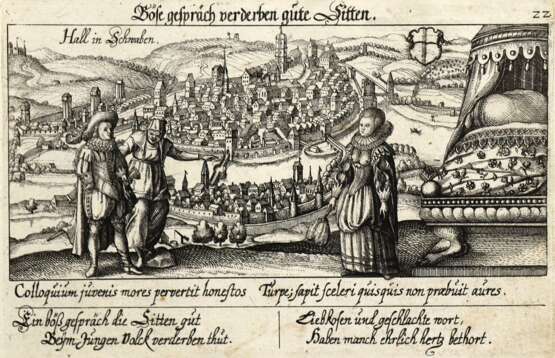 Böse gespräch verderben gute Sitten.
22
Hall in Schwaben.
Colloquium juvenis mores pervertit honestos Turpe; sapit sceleri quisquis non præbuit aures.
Ein böß gespräch die Sitten gut
Beym Jungen Volck verderben thut.
Liebkosen und geschlachte wort,
Haben manch ehrlich hertz bethort.